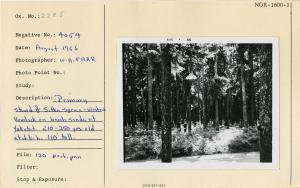 NOR-1600-11
Cx. No.: 2285
Negative No.: 4054
Date: August 1966
Photographer: W.A. FARR
Photo Point No.:
Study:
Description: Primary
stand of Sitka spruce-western
hemlock on beach sands at
Yakutat. 210-250 yrs old
at d.b.h. 110' tall.
Film: 120
Filter:
Stop & Exposure: